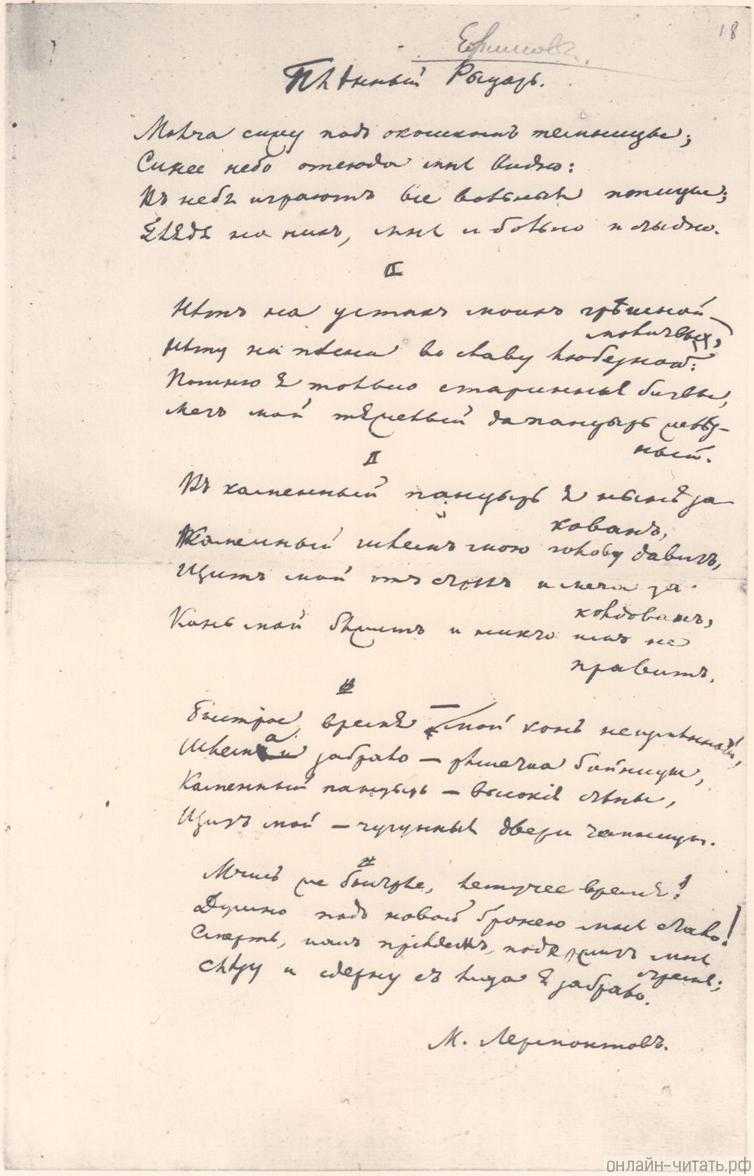 18
Плѣнный Рыцарь.
Молча сижу подъ окошкомъ темницы;
Синее небо отсюда мнѣ видно:
Въ небѣ играютъ все вольныя птицы;
Глядя на нихъ, мнѣ и больно и стыдно.
II
Нѣтъ на устахъ моихъ грѣшной
молитвы,
Нѣту ни пѣсни во славу любезной:
Помню я только старинныя битвы,
Мечъ мой тяжелый да панцырь желѣз-
ный.
Въ каменный панцырь я нынѣ за
кованъ,
Каменный шлемъ мою голову давитъ,
Щитъ мой отъ стрѣлъ и меча за-
колдованъ,
Конь мой бѣжитъ и никто имъ не
правитъ.
Быстрое время — мой конь неизмѣнный,
Шлема забрало — рѣшетка бойницы,
Каменный панцырь — высокія стѣны,
Щитъ мой — чугунныя двери темницы.
Мчись же быстрѣе, летучее время!
Душно подъ новой бронею мнѣ стало!
Смерть, какъ пріѣдемъ, подержитъ мнѣ
стремя;
Слѣзу и сдерну съ лица я забрало.
М. Лермонтовъ.
онлайн-читать.рф